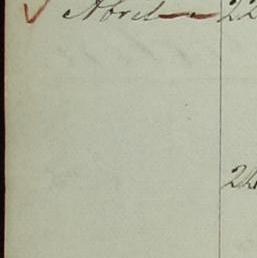 Abril 22
24